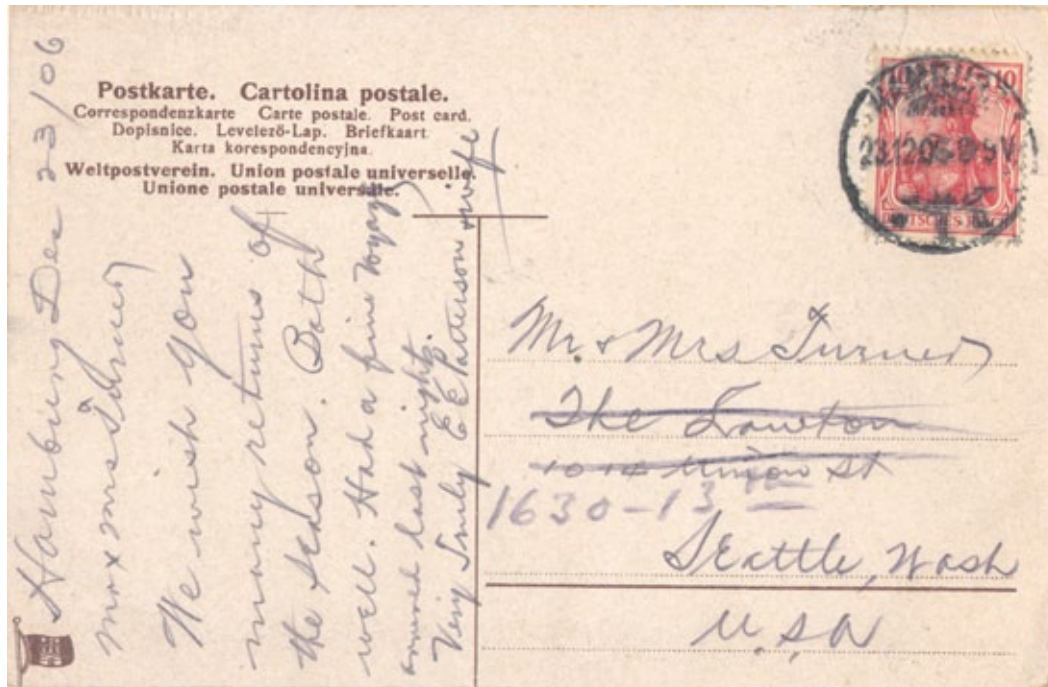 Postkarte. Cartolina postale.
Correspondenzkarte Carte postale. Post card.
Dopisnice. Levelező-Lap. Briefkaart
Karta korespondencyjna.
Weltpostverein. Union postale universelle.
Unione postale universale.
Hamburg Dec 23/06
Mr & Mrs Turner
We wish you
many returns of
the season. Both
well. Had a fine voyage
arrived last night.
Very Truly E E Patterson & wife
10 10
23.12.06 8-9V
DEUTSCHES REICH
Mr. & Mrs Turner
The Lawton
1014 Union St
1630-13th
Seattle, Wash
U.S.A